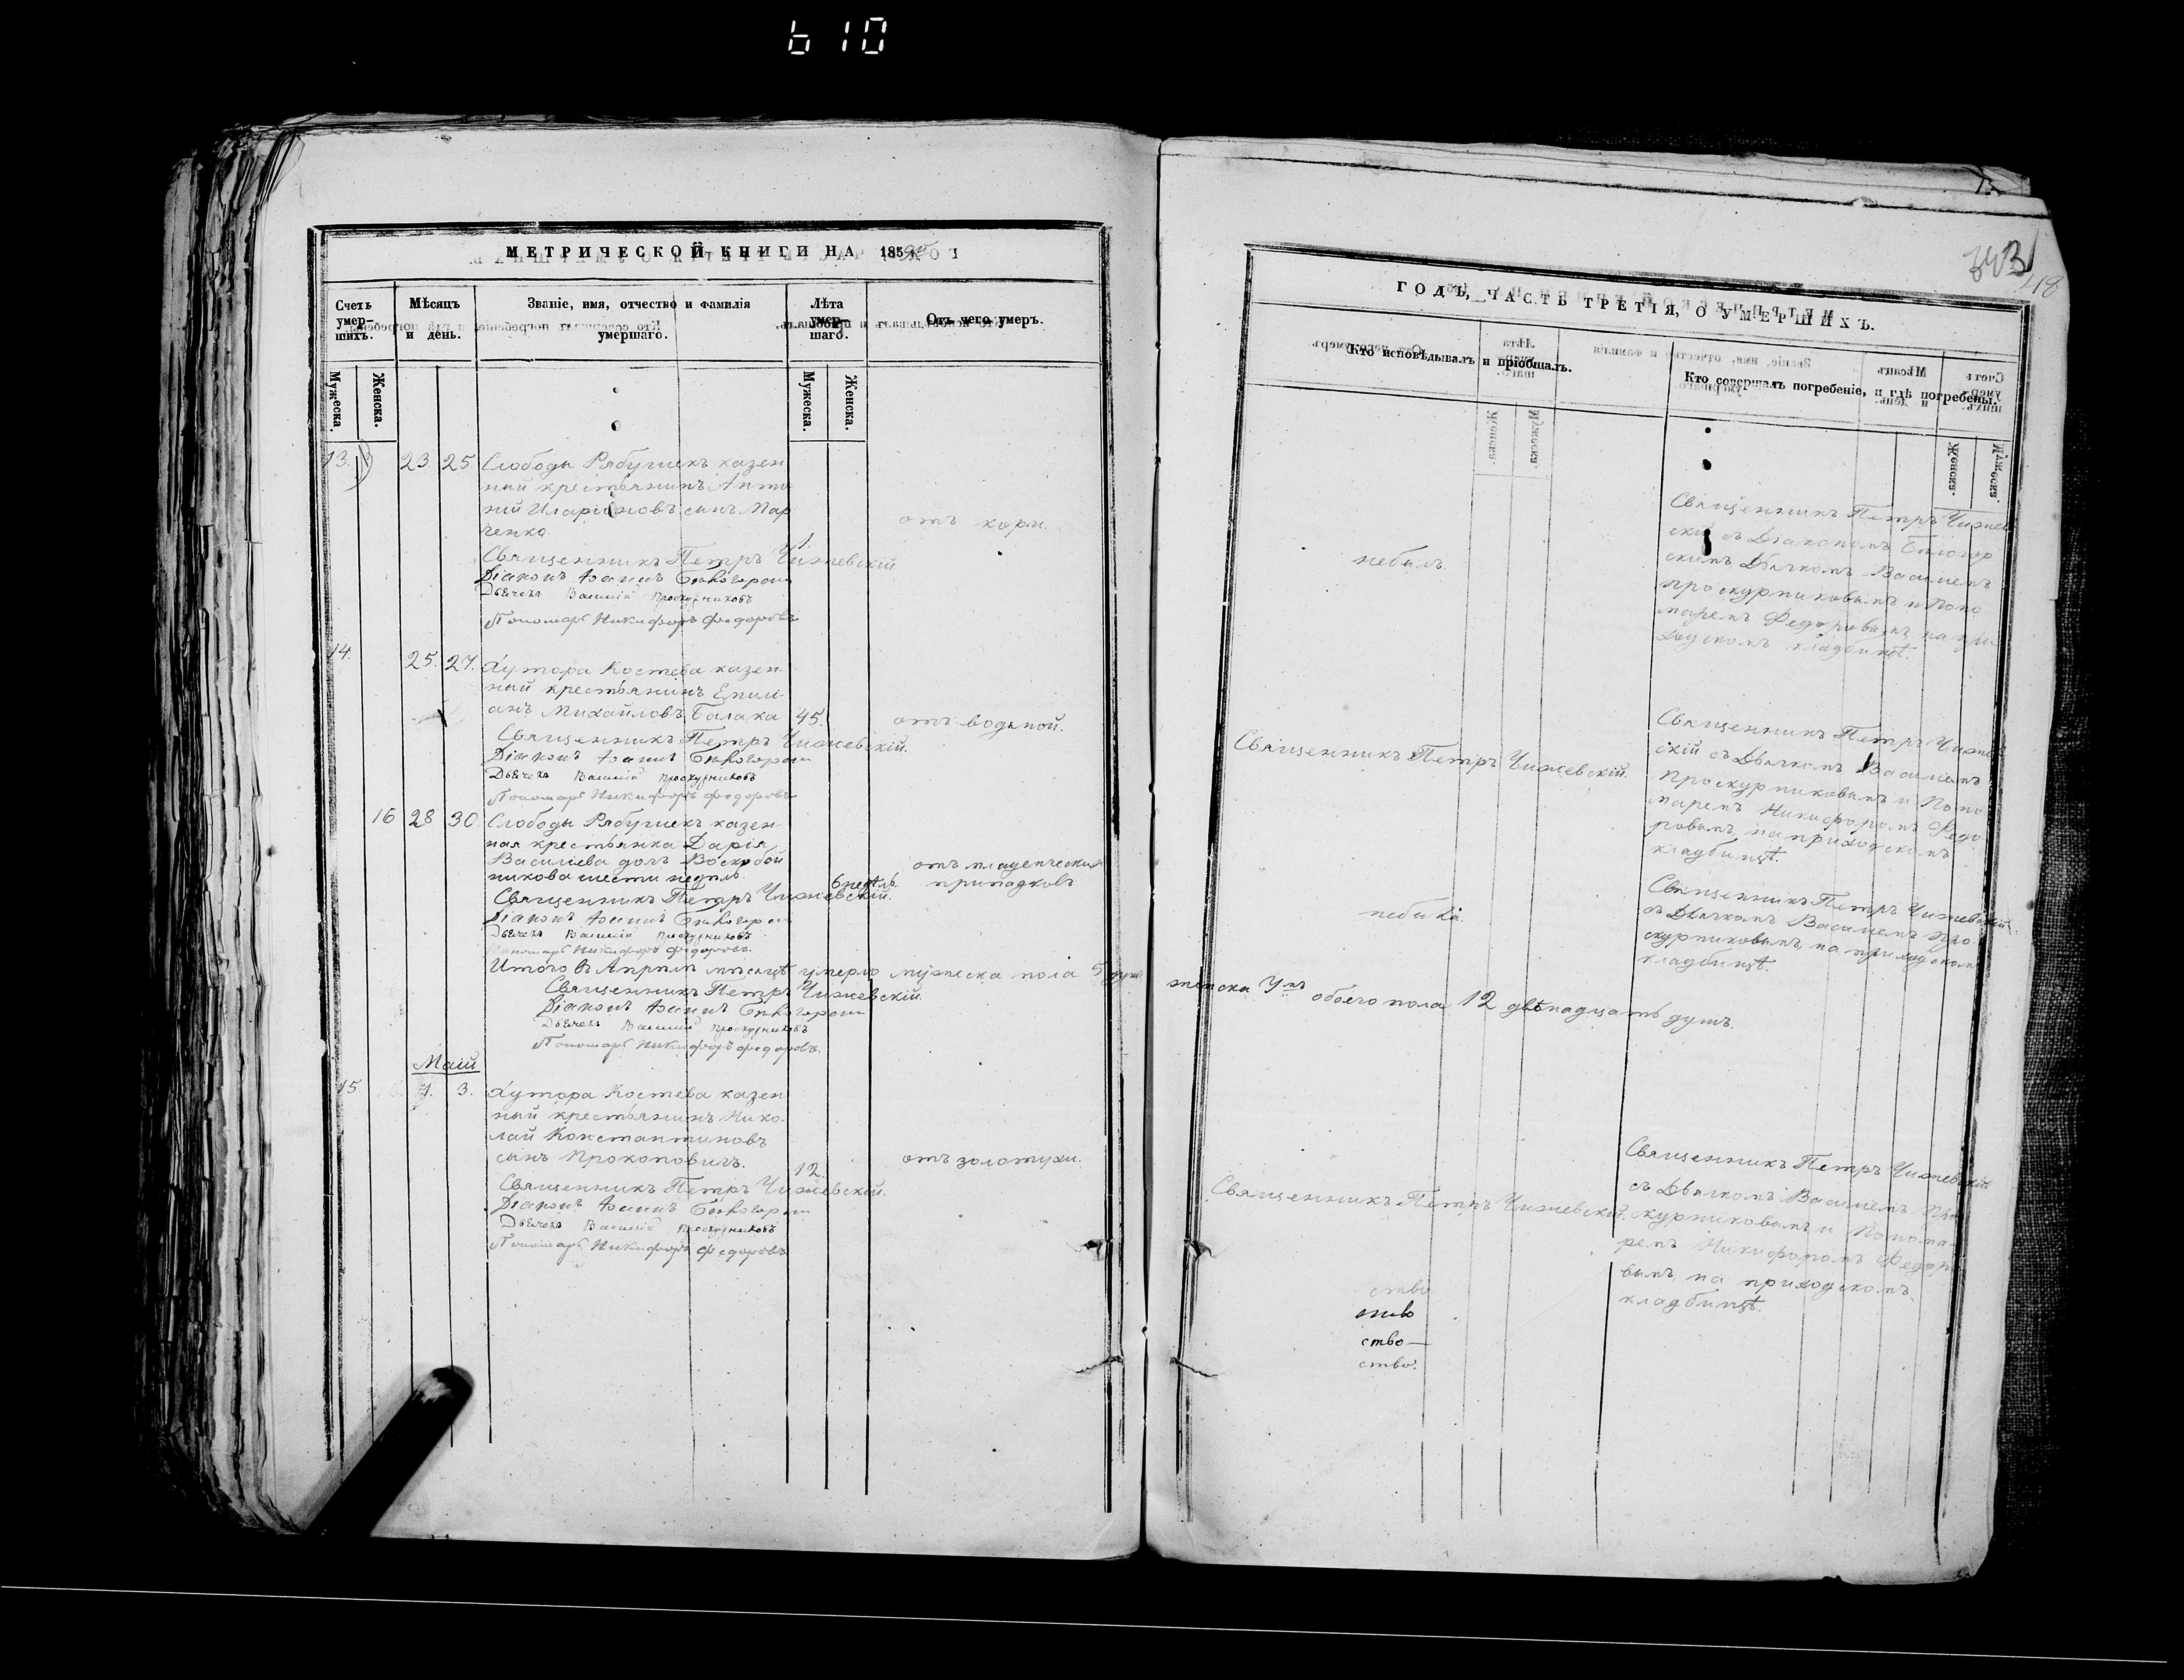 610
МЕТРИЧЕСКОЙ КНИГИ НА 185
Счетъ умер-шихъ.
Мѣсяцъ и день.
Званіе, имя, отчество и фамилія умершаго.
Лѣта умер-шаго.
Отъ чего умеръ.
Мужеска.
Женска.
Мужеска.
Женска.
13. 23. 25. Слободы Рябушекъ казен
ный крестьянинъ Анто
ній Иларіоновъ сынъ Мар
ченко. 1 отъ кори.
Священникъ Петръ Чижевскій
Діаконъ Іоаннъ
Дьячекъ Василій Проскурниковъ
Пономарь Никифоръ Федоровъ
14. 25. 27. Хутора Костева казен
ный крестьянинъ Емилі-
анъ Михайловъ Балака 45. отъ водяной.
Священникъ Петръ Чижевскій.
Діаконъ Іоаннъ
Дьячекъ Василій Проскурниковъ
Пономарь Никифоръ Федоровъ
16 28 30. Слободы Рябушекъ казен-
ная крестьянка Дарія
Василіева дочь Воскобой
никова шести недѣль. 6 недѣль. отъ младенческихъ
припадковъ
Священникъ Петръ Чижевскій.
Діаконъ Іоаннъ
Дьячекъ Василій Проскурниковъ
Пономарь Никифоръ Федоровъ.
Итого въ Апрѣлѣ мѣсяцѣ умерло мужеска пола 5 душъ
Священникъ Петръ Чижевскій.
Діаконъ Іоаннъ
Дьячекъ Василій Проскурниковъ
Пономарь Никифоръ Федоровъ.
Маій
15. 1. 3. Хутора Костева казен
ный крестьянинъ Нико-
лай Константиновъ
сынъ Прокоповичъ. 12. отъ золотухи.
Священникъ Петръ Чижевскій.
Діаконъ Іоаннъ
Дьячекъ Василій Проскурниковъ
Пономарь Никифоръ Федоровъ
418
ГОДЪ, ЧАСТЬ ТРЕТІЯ, О УМЕРШИХЪ.
Кто исповѣдывалъ и пріобщалъ.
Кто совершалъ погребеніе, и гдѣ погребены.
небылъ.
Священникъ Петръ Чижев
скій съ Діакономъ Билогор
скимъ Дьячкомъ Василіемъ
Проскурниковымъ и Поно
маремъ Федоровымъ на при
ходскомъ кладбищѣ.
Священникъ Петръ Чижевскій.
Священникъ Петръ Чижев
скій съ Дьячкомъ Василіемъ
Проскурниковымъ и Поно
маремъ Никифоромъ Федо
ровымъ, на приходскомъ
кладбищѣ.
небыла.
Священникъ Петръ Чижевскій
съ Дьячкомъ Василіемъ Про
скурниковымъ на приходском
кладбищѣ.
женска обоего пола 12 двѣнадцать душъ.
Священникъ Петръ Чижевскій.
Священникъ Петръ Чижевскій
съ Дьячкомъ Василіемъ Про
скурниковымъ и Понома-
ремъ Никифоромъ Федоро
вымъ, на приходскомъ
кладбищѣ.
ство
ство
ство —
ство.